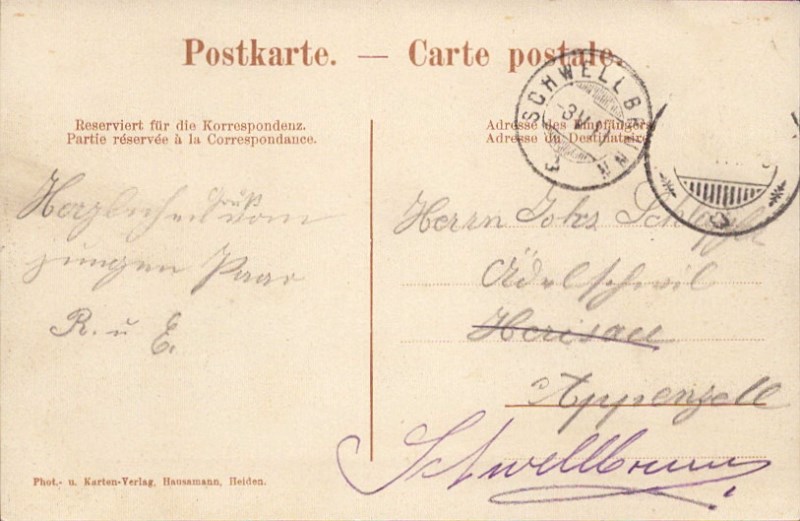 Postkarte. — Carte postale.
SCHWELLBRUNN
Reserviert für die Korrespondenz.
Partie réservée à la Correspondance.
Adresse des Empfängers
Adresse du Destinataire
Gruß
vom
jungen Paar
R. u E.
Herrn Johs
Herisau
Appenzell
Schwellbrunn
Phot.- u. Karten-Verlag, Hausamann, Heiden.